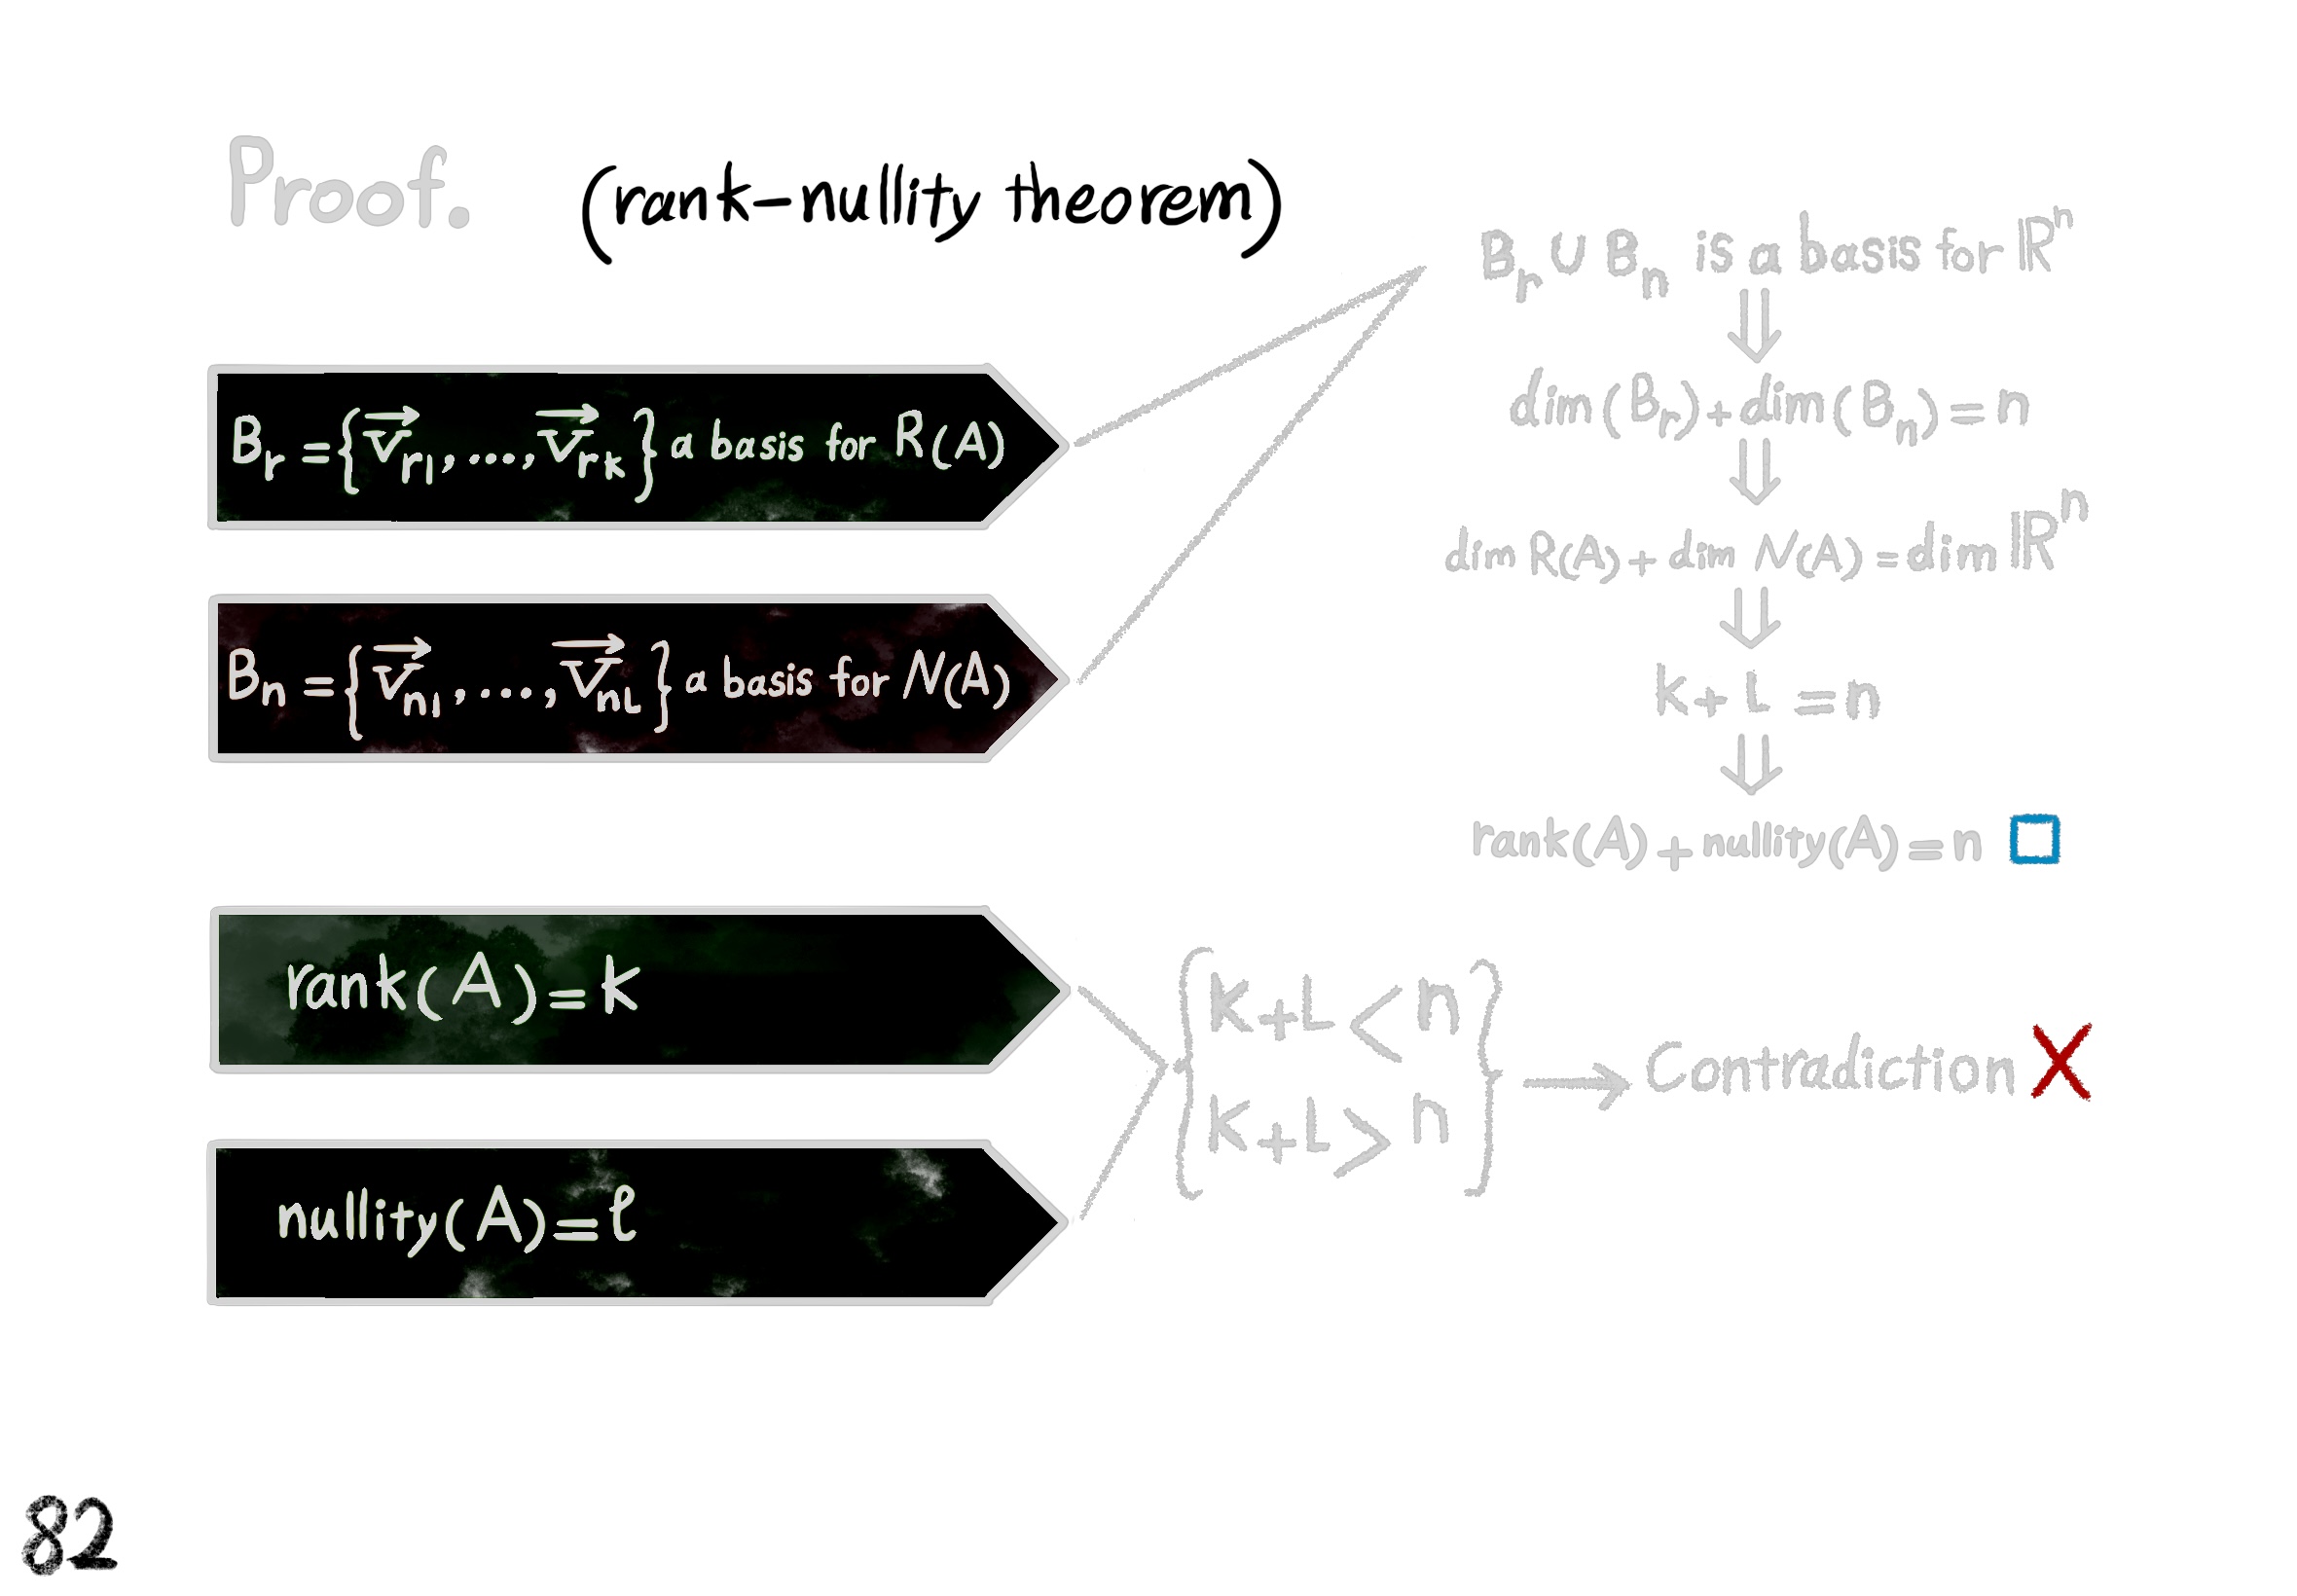 Proof. (rank-nullity theorem)
B_r = {v⃗_r1, ..., v⃗_rk} a basis for R(A)
B_n = {v⃗_n1, ..., v⃗_nL} a basis for N(A)
rank(A) = k
nullity(A) = ℓ
B_r ∪ B_n is a basis for ℝ^n
⇓
dim(B_r) + dim(B_n) = n
⇓
dim R(A) + dim N(A) = dim ℝ^n
⇓
k + L = n
⇓
rank(A) + nullity(A) = n □
{k + L < n
k + L > n} → Contradiction X
82